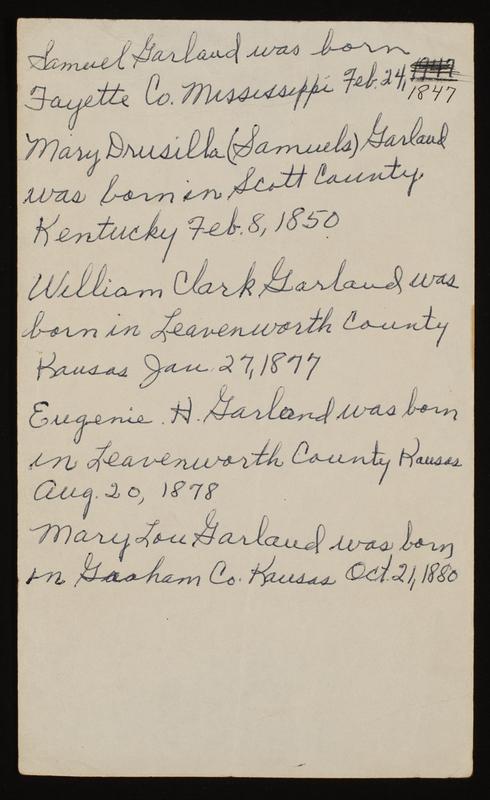 Samuel Garland was born
Fayette Co. Mississippi Feb. 24, 1947
1847
Mary Drusilla (Samuels) Garland
was born in Scott County
Kentucky Feb. 8, 1850
William Clark Garland was
born in Leavenworth County
Kansas Jan. 27, 1877
Eugenie H. Garland was born
in Leavenworth County Kansas
Aug. 20, 1878
Mary Lou Garland was born
in Graham Co. Kansas Oct. 21, 1880